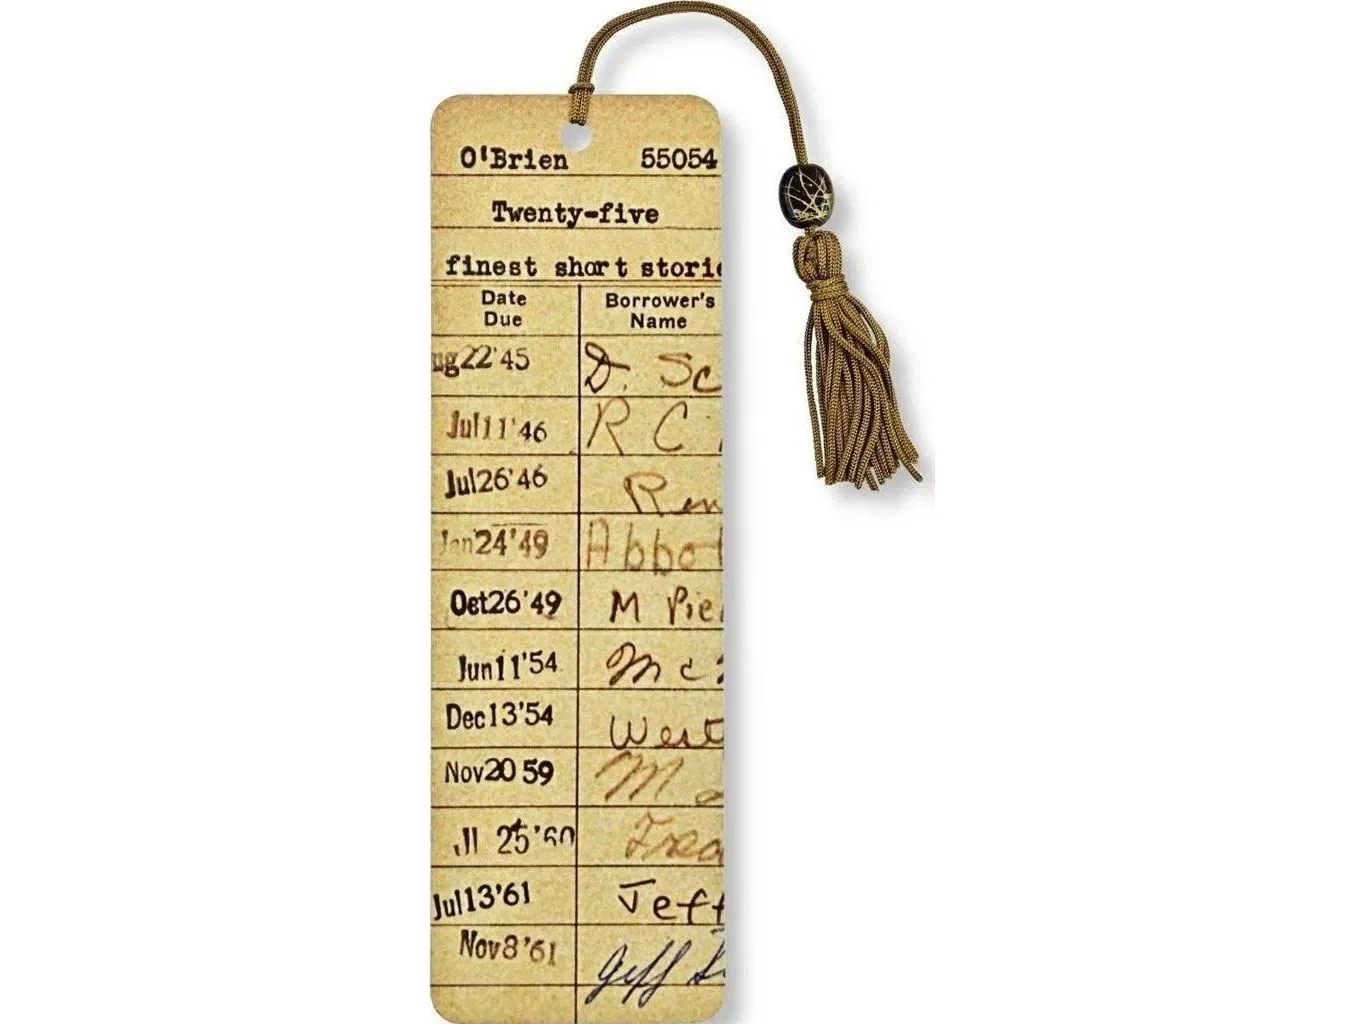 O'Brien 55054
Twenty-five
finest short storie
Date Due Borrower's Name
ug22'45 D. Sc
Jul11'46 R C
Jul26'46 Ren
Jan24'49 Abbot
Oct26'49 M Pie
Jun11'54 Mc
Dec13'54 West
Nov20 59 M
25'60
Jul13'61 Jeff
Nov8'61 Jeff